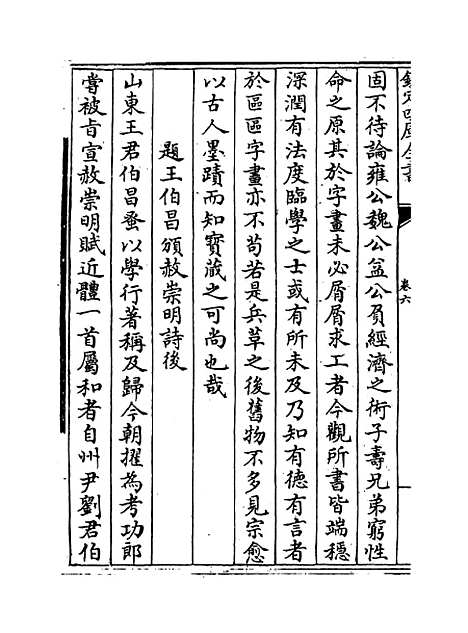 欽定四庫全書
卷六
固不待論雍公魏公益公負經濟之術子壽兄弟窮性
命之原其於字畫未必屑屑求工者今觀所書皆端穩
深潤有法度臨學之士或有所未及乃知有徳有言者
於區區字畫亦不苟若是兵草之後舊物不多見宗愈
以古人墨蹟而知寳蔵之可尚也哉
題王伯昌頒赦崇明詩後
山東王君伯昌蚤以學行著稱及歸今朝擢為考功郎
嘗被㫖宣赦崇明賦近體一首屬和者自州尹劉君伯